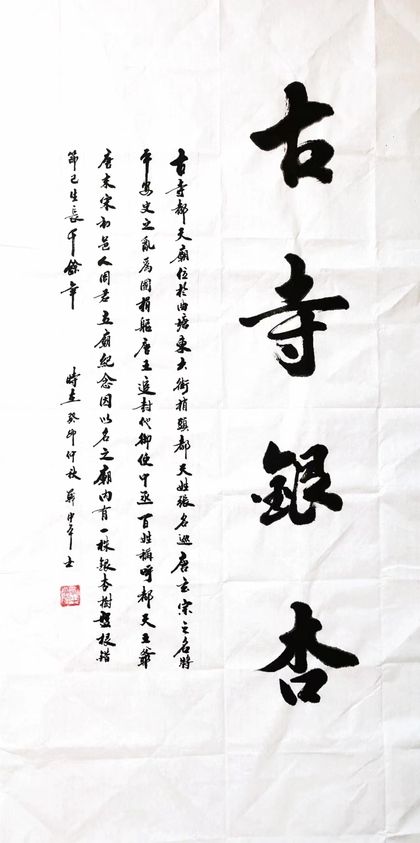 古寺銀杏
古寺都天廟位於曲塘東大街梢頭都天姓張名巡唐玄宗之名將
平安史之亂為國捐軀唐王追封代御使中丞百姓稱呼都天王爺
唐末宋初邑人周君立廟紀念因以名之廟內有一株銀杏樹盤根錯
節已生長千餘年
時在癸卯仲秋